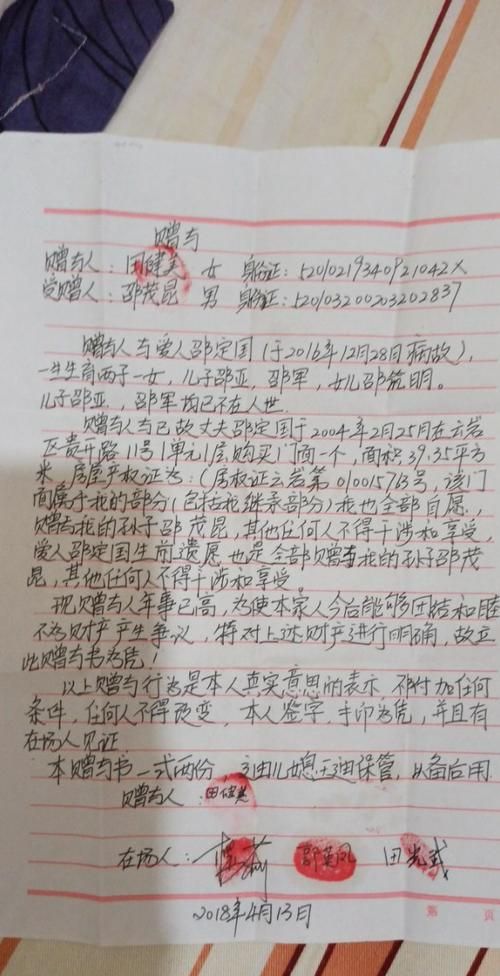 赠与
赠与人：田健美 女 身份证：52010219340921042X
受赠人：邵茂昆 男 身份证：520103200203202837
赠与人与爱人邵定国（于2016年12月28日病故），
一生生育两子一女，儿子邵亚，邵军，女儿邵筑明。
儿子邵亚，邵军均已不在人世.
赠与人与已故丈夫邵定国于2004年2月25月在云岩
区贵开路11号1单元1层购买门面一个，面积39.35平方
米，房屋产权证为：（房权证云岩第010015763号，该门
面属于我的部分（包括我继承部分）我也全部自愿，
赠与我的孙子邵茂昆，其他任何人不得干涉和享受，
爱人邵定国生前遗愿也是全部赠与我的孙子邵茂
昆，其他任何人不得干涉和享受。
现赠与人年事已高，为使本家人今后能够团结和睦
不为财产产生争议，特对上述财产进行明确，故立
此赠与书为凭！
以上赠与行为是本人真实意思的表示，不附加任何
条件，任何人不得改变，本人签字，手印为凭，并且有
在场人见证.
本赠与书一式两份，交由儿媳王迪保管，以备后用.
赠与人：田健美
在场人： 邵英凤 田光武
2018年4月13日
第 页